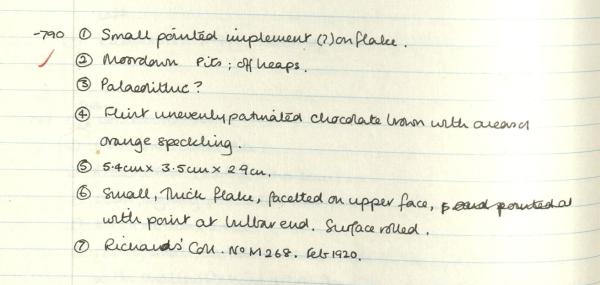 -790 ① Small pointed implement (?) on flake.
② Moordown Pits; off heaps.
③ Palaeolithic?
④ Flint unevenly patinated chocolate brown with areas of
orange speckling.
⑤ 5.4cm x 3.5cm x 2.9cm.
⑥ Small, thick flake, facetted on upper face, pointed at
with point at bulbar end. Surface rolled.
⑦ Richards' Coll. No M268. Feb 1920.